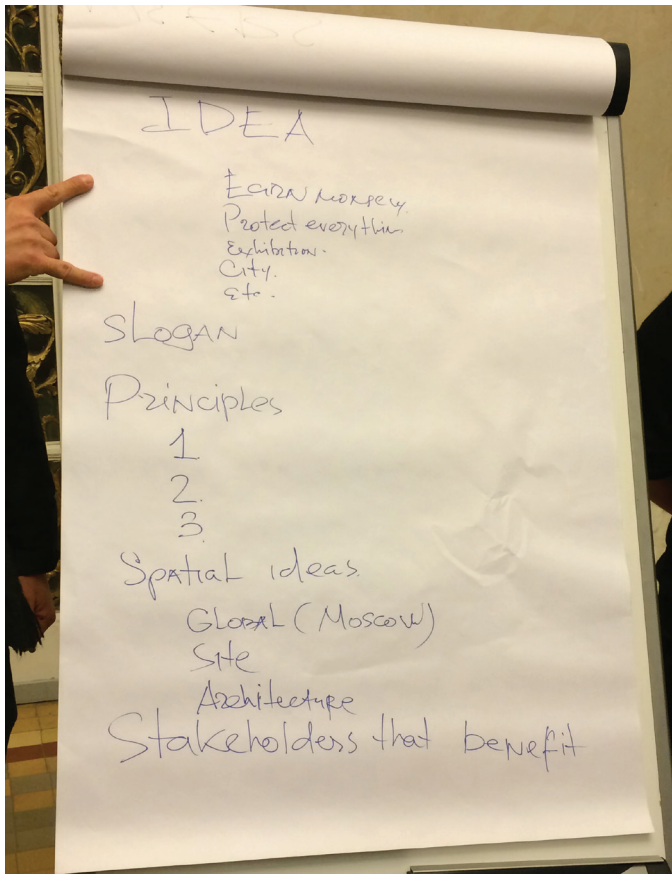 IDEA
Earn money.
Protect everythin
Exhibition.
City.
Etc.
SLOGAN
Principles
1
2.
3.
Spatial ideas.
GLOBAL (Moscow)
Site
Architecture
Stakeholders that benefit